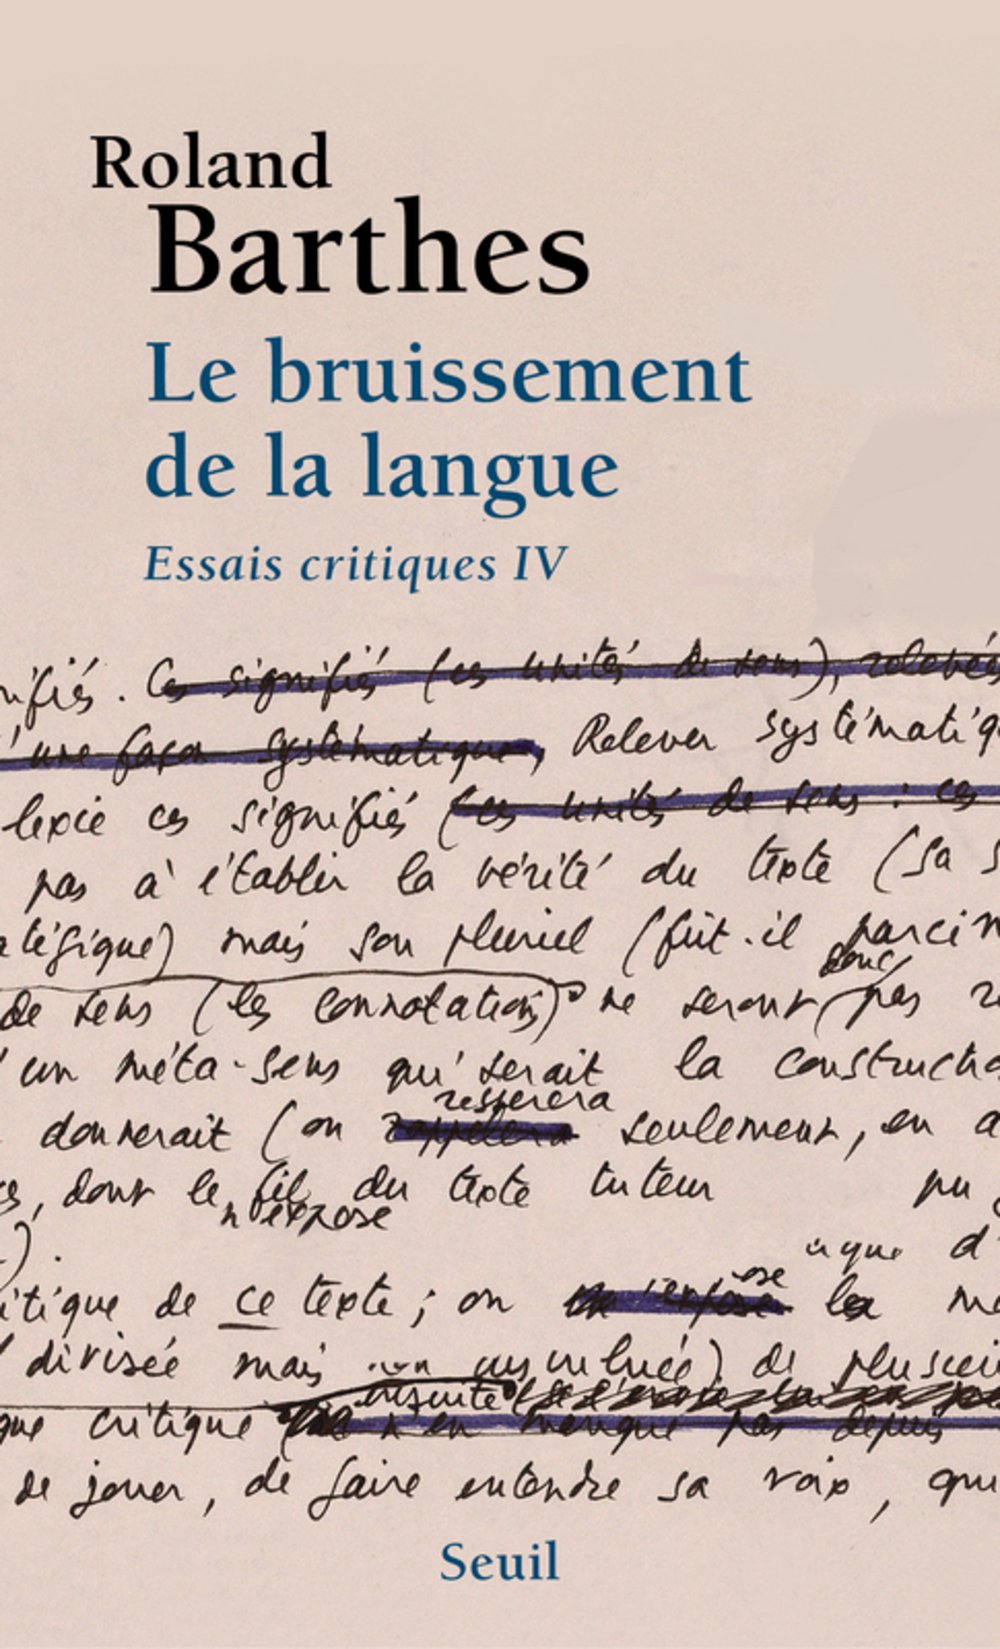 Roland
Barthes
Le bruissement
de la langue
Essais critiques IV
nifiés. Ces signifiés (ces unités de sens), relevés
d'une façon systématique, Relever systématiq
lexie ces signifiés (ces unités de sens : ces
pas à établir la vérité du texte (sa s
atégique) mais son pluriel (fût-il parcim
donc
de sens (les connotations) ne seront pas r
un méta-sens qu'serait la constructio
resserera
donnerait (on rappelera seulement, en a
, dont le fil du texte tuteur pu
n'expose
). que d'
itique de ce texte ; on la me
divisée mais) de plusieu
ensuite
que critique n'en manque pas depuis
de jouer, de faire entendre sa voix, qui
Seuil